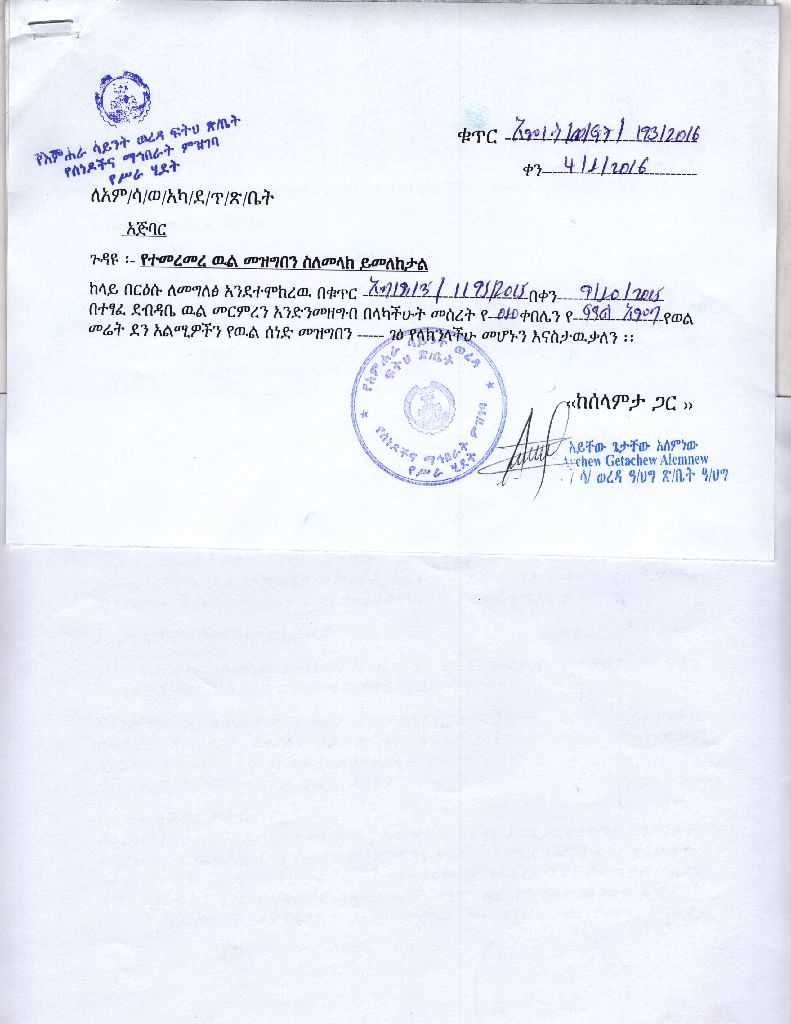 የአምሐራ ሳይንት ወረዳ ፍትህ ጽ/ቤት
የሰነዶችና ማኅበራት ምዝገባ
የሥራ ሂደት
ቁጥር 193/2016
ቀን 4/1/2016
ለአም/ሳ/ወ/አካ/ደ/ጥ/ጽ/ቤት
አጅባር
ጉዳዩ ፡- የተመረመረ ዉል መዝግበን ስለመላክ ይመለከታል
ከላይ በርዕሱ ለመግለፅ እንደተሞከረዉ በቁጥር 1195/2015 በቀን 9/10/2015
በተፃፈ ደብዳቤ ዉል መርምረን እንድንመዘግብ በላካችሁት መሰረት የ ቀበሌን የ የወል
መሬት ደን አልሚዎችን የዉል ሰነድ መዝግበን ----- ገፅ የላክንላችሁ መሆኑን እናስታዉቃለን ፡፡
‹‹ከሰላምታ ጋር ››
የአምሐራ ሳይንት ወረዳ
ፍትህ ጽ/ቤት
የሰነዶችና ማኅበራት ምዝገባ
የሥራ ሂደት
አይቸው ጌታቸው አለምነው
Getachew Alemnew
ሳ/ ወረዳ ዓ/ህግ ጽ/ቤት ዓ/ህግ